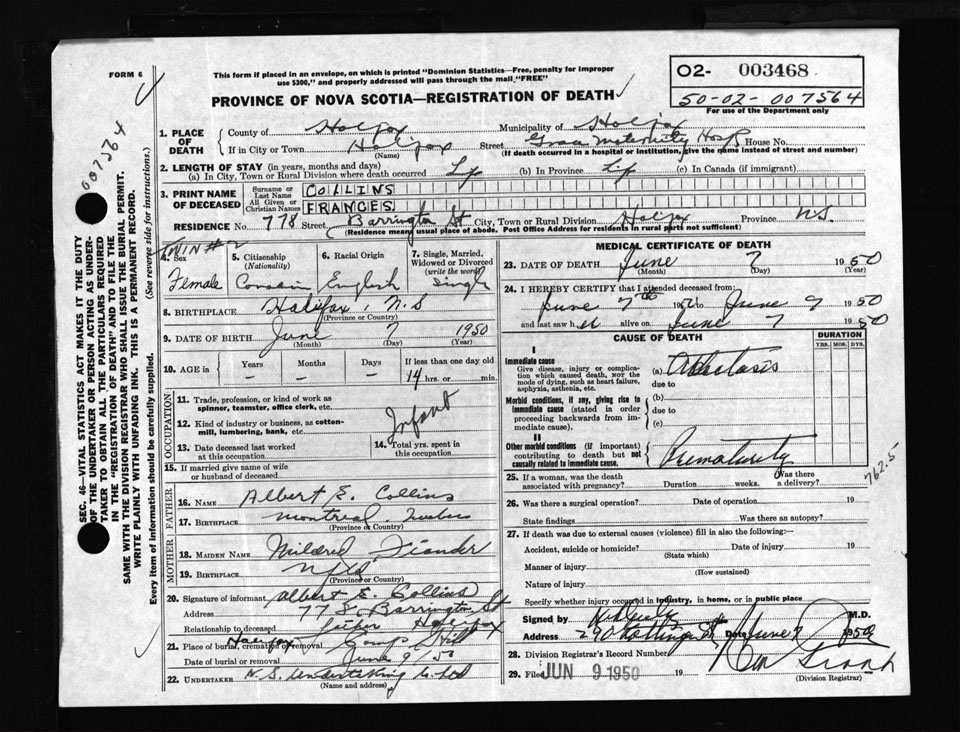 FORM 6
This form if placed in an envelope, on which is printed "Dominion Statistics—Free, penalty for improper
use $300," and properly addressed will pass through the mail "FREE"
PROVINCE OF NOVA SCOTIA—REGISTRATION OF DEATH
O2- 003468
50-02-007564
For use of the Department only
007564
SEC. 46—VITAL STATISTICS ACT MAKES IT THE DUTY
OF THE UNDERTAKER OR PERSON ACTING AS UNDER-
TAKER TO OBTAIN ALL THE PARTICULARS REQUIRED
IN THE "REGISTRATION OF DEATH" AND TO FILE THE
SAME WITH THE DIVISION REGISTRAR WHO SHALL ISSUE THE BURIAL PERMIT.
WRITE PLAINLY WITH UNFADING INK. THIS IS A PERMANENT RECORD.
Every item of information should be carefully supplied. (See reverse side for instructions.)
1. PLACE OF DEATH
County of Halifax Municipality of Halifax
If in City or Town Halifax Street Grace Maternity Hosp House No.
(Name) (If death occurred in a hospital or institution, give the name instead of street and number)
2. LENGTH OF STAY (in years, months and days)
(a) In City, Town or Rural Division where death occurred Lf (b) In Province Lf (c) In Canada (if immigrant)
3. PRINT NAME OF DECEASED
Surname or Last Name COLLINS
All Given or Christian Names FRANCES
RESIDENCE No. 778 Street Barrington St City, Town or Rural Division Halifax Province N.S.
(Residence means usual place of abode. Post Office Address for residents in rural parts not sufficient)
TWIN #2
4. Sex Female
5. Citizenship (Nationality)
6. Racial Origin English
7. Single, Married, Widowed or Divorced (write the word) Single
8. BIRTHPLACE Halifax, N.S
(Province or Country)
9. DATE OF BIRTH June 7 1950
(Month) (Day) (Year)
10. AGE in Years Months Days If less than one day old
- - 14 hrs. or min.
OCCUPATION
11. Trade, profession or kind of work as spinner, teamster, office clerk, etc.
12. Kind of industry or business, as cotton-mill, lumbering, bank, etc.
Infant
13. Date deceased last worked at this occupation
14. Total yrs. spent in this occupation
15. If married give name of wife or husband of deceased
FATHER
16. NAME Albert E. Collins
17. BIRTHPLACE Montreal Quebec
(Province or Country)
MOTHER
18. MAIDEN NAME Mildred Fiander
19. BIRTHPLACE Nfld
(Province or Country)
20. Signature of informant Albert E. Collins
Address 778 Barrington St
Relationship to deceased father Halifax
21. Place of burial, cremation or removal Halifax Camp Hill
Date of burial or removal June 9/50
22. UNDERTAKER N.S. Undertaking Co Ltd
(Name and address)
MEDICAL CERTIFICATE OF DEATH
23. DATE OF DEATH June 7 1950
(Month) (Day) (Year)
24. I HEREBY CERTIFY that I attended deceased from:
June 7th to June 7 1950
and last saw h er alive on June 7 1950
CAUSE OF DEATH
DURATION
YRS. MOS. DYS.
I
Immediate cause
Give disease, injury or complication which caused death, NOT the mode of dying, such as heart failure, asphyxia, asthenia, etc.
(a) Atelectasis
due to
Morbid conditions, if any, giving rise to immediate cause (stated in order proceeding backwards from immediate cause).
(b)
due to
(c)
II
Other morbid conditions (if important) contributing to death but not causally related to immediate cause.
Prematurity
762.5
25. If a woman, was the death associated with pregnancy? Duration weeks. Was there a delivery?
26. Was there a surgical operation? Date of operation 19
State findings Was there an autopsy?
27. If death was due to external causes (violence) fill in also the following:
Accident, suicide or homicide? Date of injury 19
(State which)
Manner of injury
(How sustained)
Nature of injury
Specify whether injury occurred in industry, in home, or in public place
Signed by M.D.
Address 290 Date June 9 1950
28. Division Registrar's Record Number
29. Filed JUN 9 1950 19
(Division Registrar)